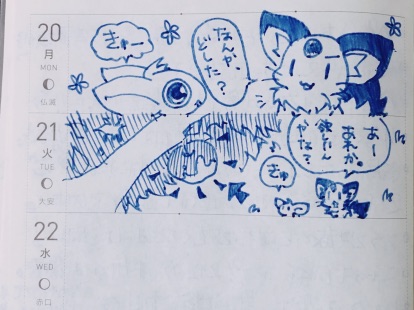 20
月
MON
仏滅
きゅー
なんや、
どした?
21
火
TUE
大安
あー
あれか。
きゅ
やな?
22
水
WED
赤口